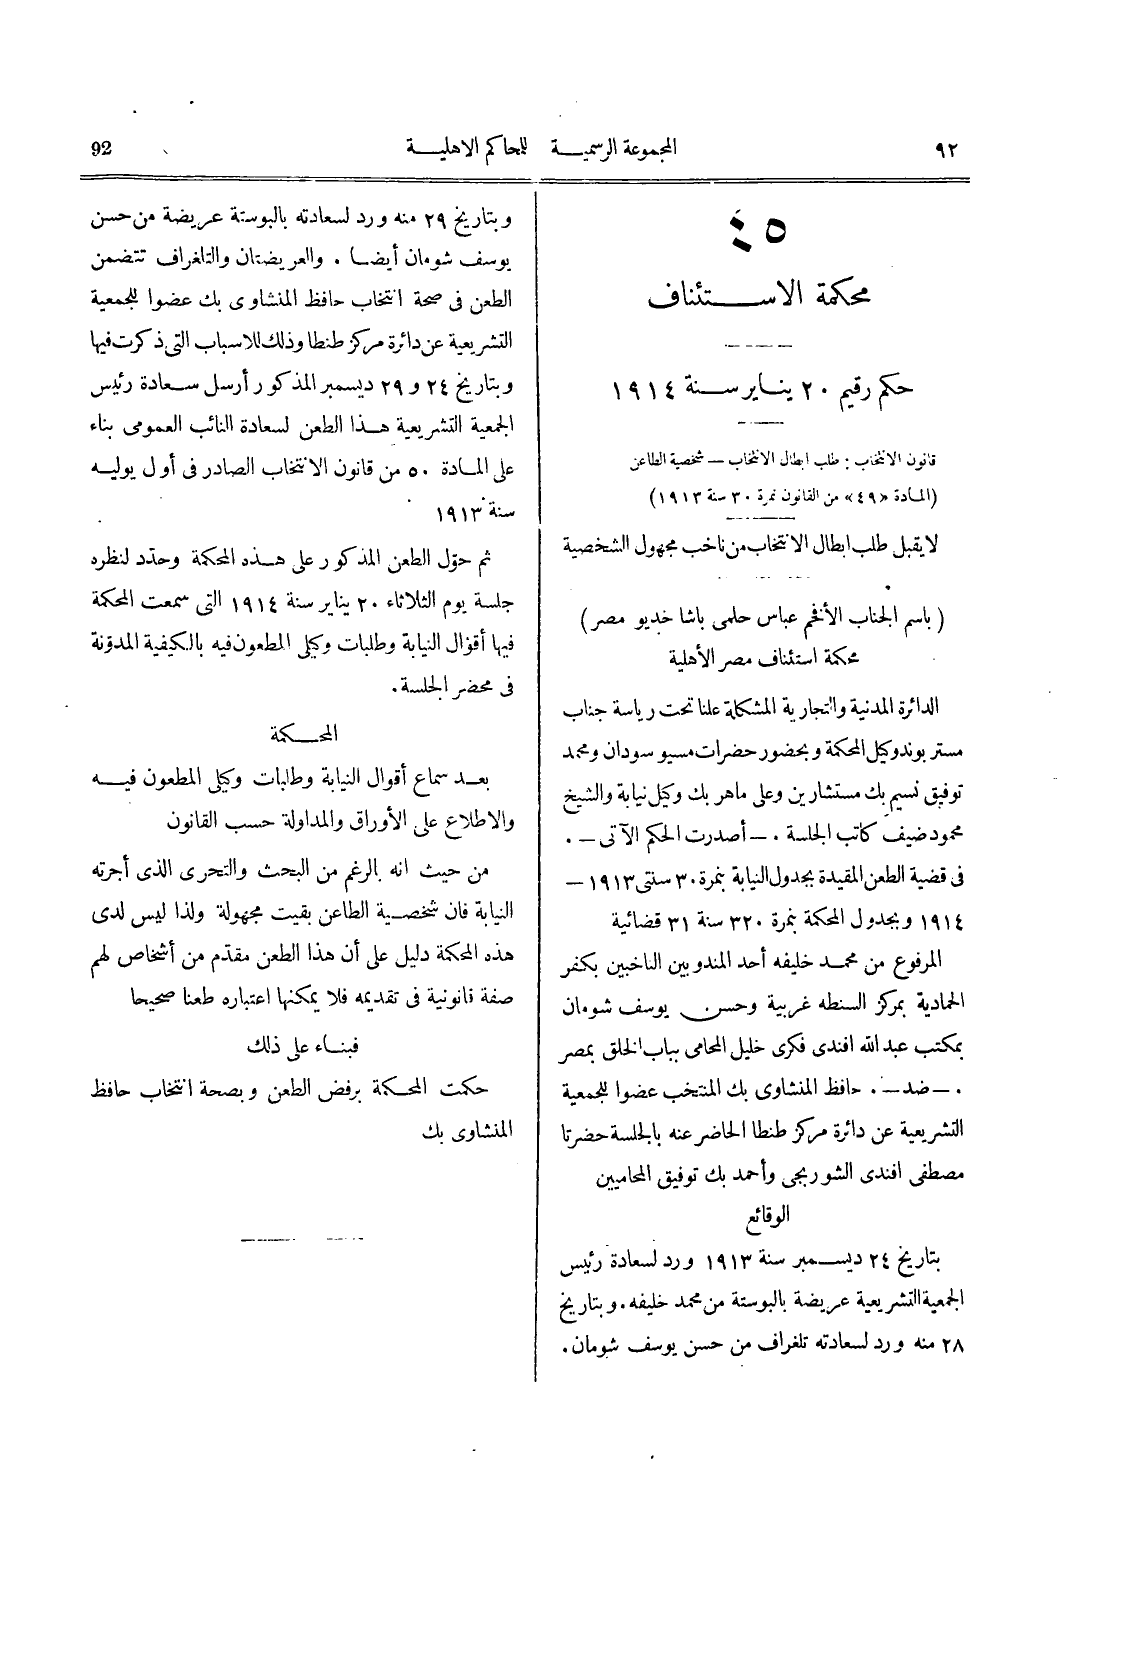 ٩٢ المجموعة الرسمية للمحاكم الاهلية 92
٤٥
محكمة الاستئناف
حكم رقيم ٢٠ يناير سنة ١٩١٤
قانون الانتخاب : طلب ابطال الانتخاب — شخصية الطاعن
(المادة «٤٩» من القانون نمرة ٣٠ سنة ١٩١٣)
لا يقبل طلب ابطال الانتخاب من ناخب مجهول الشخصية
( باسم الجناب الأفخم عباس حلمى باشا خديو مصر )
محكمة استئناف مصر الأهلية
الدائرة المدنية والتجارية المشكلة علنا تحت رياسة جناب
مستر بوند وكيل المحكمة وبحضور حضرات مسيو سودان ومحمد
توفيق نسيم بك مستشارين وعلى ماهر بك وكيل نيابة والشيخ
محمود ضيف كاتب الجلسة . — أصدرت الحكم الآتى — .
فى قضية الطعن المقيدة بجدول النيابة بنمرة ٣٠ سنتى ١٩١٣ —
١٩١٤ وبجدول المحكمة بنمرة ٣٢٠ سنة ٣١ قضائية
المرفوع من محمد خليفه أحد المندوبين الناخبين بكفر
الحمادية بمركز السنطه غربية وحسن يوسف شومان
بمكتب عبد الله افندى فكرى خليل المحامى بباب الخلق بمصر
. — ضد — . حافظ المنشاوى بك المنتخب عضوا للجمعية
التشريعية عن دائرة مركز طنطا الحاضر عنه بالجلسة حضرتا
مصطفى افندى الشوربجى وأحمد بك توفيق المحاميين
الوقائع
بتاريخ ٢٤ ديسمبر سنة ١٩١٣ ورد لسعادة رئيس
الجمعية التشريعية عريضة بالبوستة من محمد خليفه . وبتاريخ
٢٨ منه ورد لسعادته تلغراف من حسن يوسف شومان .
وبتاريخ ٢٩ منه ورد لسعادته بالبوستة عريضة من حسن
يوسف شومان أيضا . والعريضتان والتلغراف تتضمن
الطعن فى صحة انتخاب حافظ المنشاوى بك عضوا للجمعية
التشريعية عن دائرة مركز طنطا وذلك للاسباب التى ذكرت فيها
وبتاريخ ٢٤ و ٢٩ ديسمبر المذكور أرسل سعادة رئيس
الجمعية التشريعية هذا الطعن لسعادة النائب العمومى بناء
على المادة ٥٠ من قانون الانتخاب الصادر فى أول يوليه
سنة ١٩١٣
ثم حوّل الطعن المذكور على هذه المحكمة وحدّد لنظره
جلسة يوم الثلاثاء ٢٠ يناير سنة ١٩١٤ التى سمعت المحكمة
فيها أقوال النيابة وطلبات وكيلى المطعون فيه بالكيفية المدوّنة
فى محضر الجلسة .
المحكمة
بعد سماع أقوال النيابة وطلبات وكيلى المطعون فيه
والاطلاع على الأوراق والمداولة حسب القانون
من حيث انه بالرغم من البحث والتحرى الذى أجرته
النيابة فان شخصية الطاعن بقيت مجهولة ولذا ليس لدى
هذه المحكمة دليل على أن هذا الطعن مقدّم من أشخاص لهم
صفة قانونية فى تقديمه فلا يمكنها اعتباره طعنا صحيحا
فبناء على ذلك
حكمت المحكمة برفض الطعن وبصحة انتخاب حافظ
المنشاوى بك